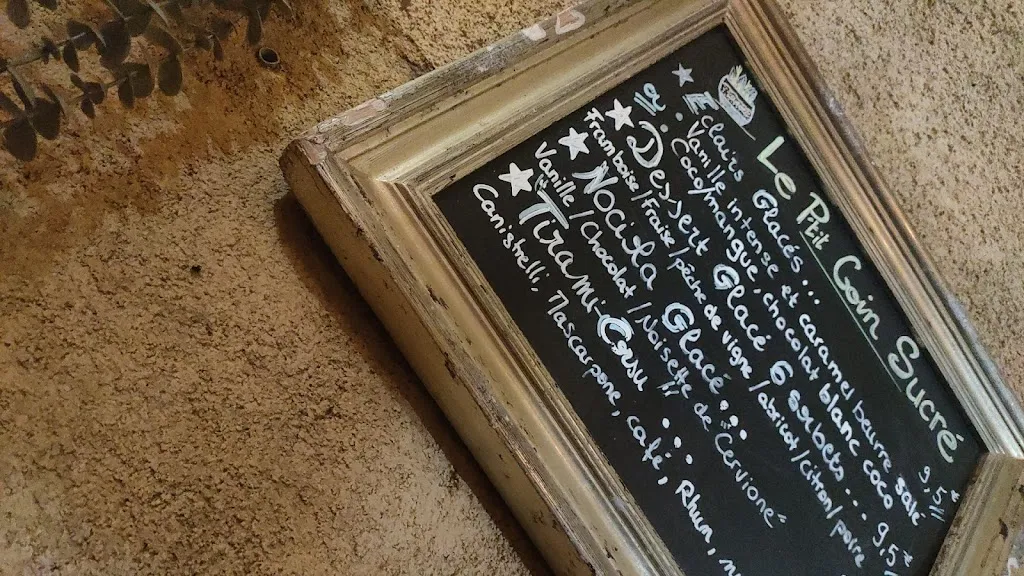 Le P'tit Coin Sucré
Eclairs Glacés...
Vanille intense et caramel beurre salé
Coco/mangue, chocolat blanc coco 9,5€
Dessert Glacé 6 Sorbets...
Framboise/Fraise/pêche de vigne/abricot/citron/poire
Nocciola Glacé...
Vanille/Chocolat/Noisette de "Cervione"
Tirami-Corsu...
Canistrelli, Mascarpone, café, Rhum,